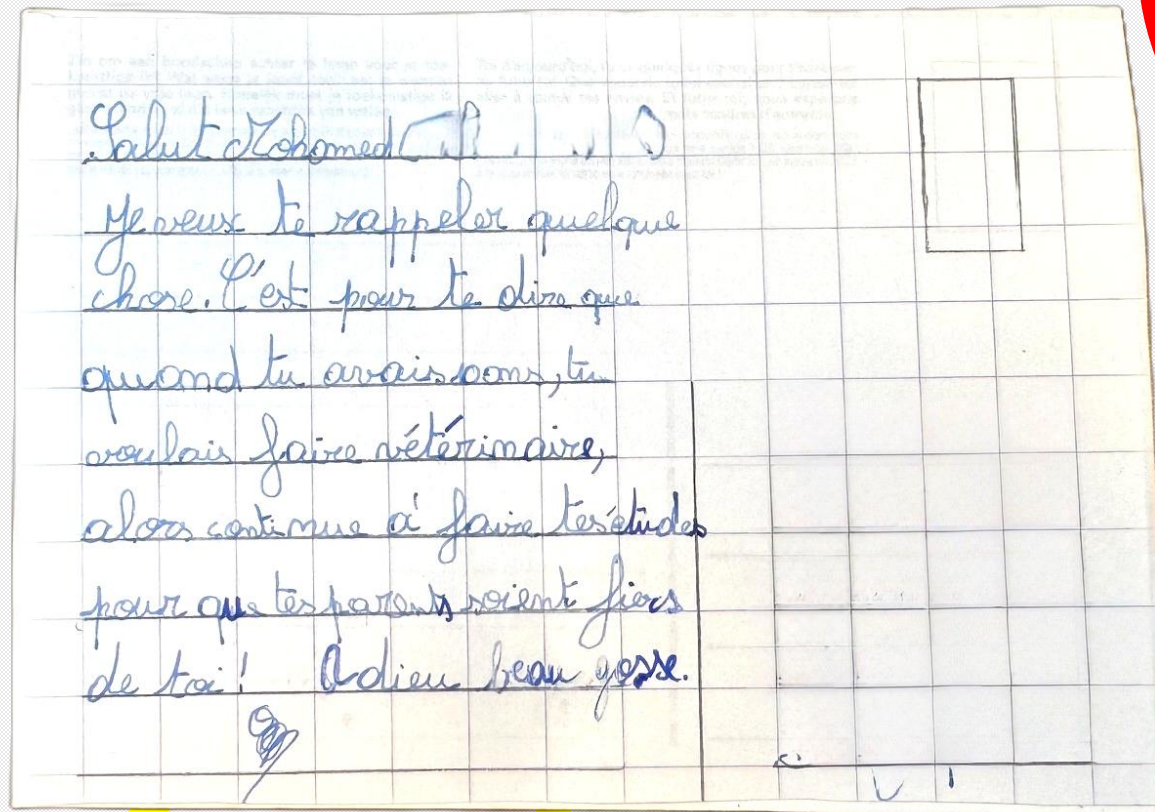 Salut Mohomed
Je veux te rappeler quelque
chose. C'est pour te dire que
quand tu avais ans, tu
voulais faire vétérinaire,
alors continue à faire tes études
pour que tes parents soient fiers
de toi! Adieu beau gosse.